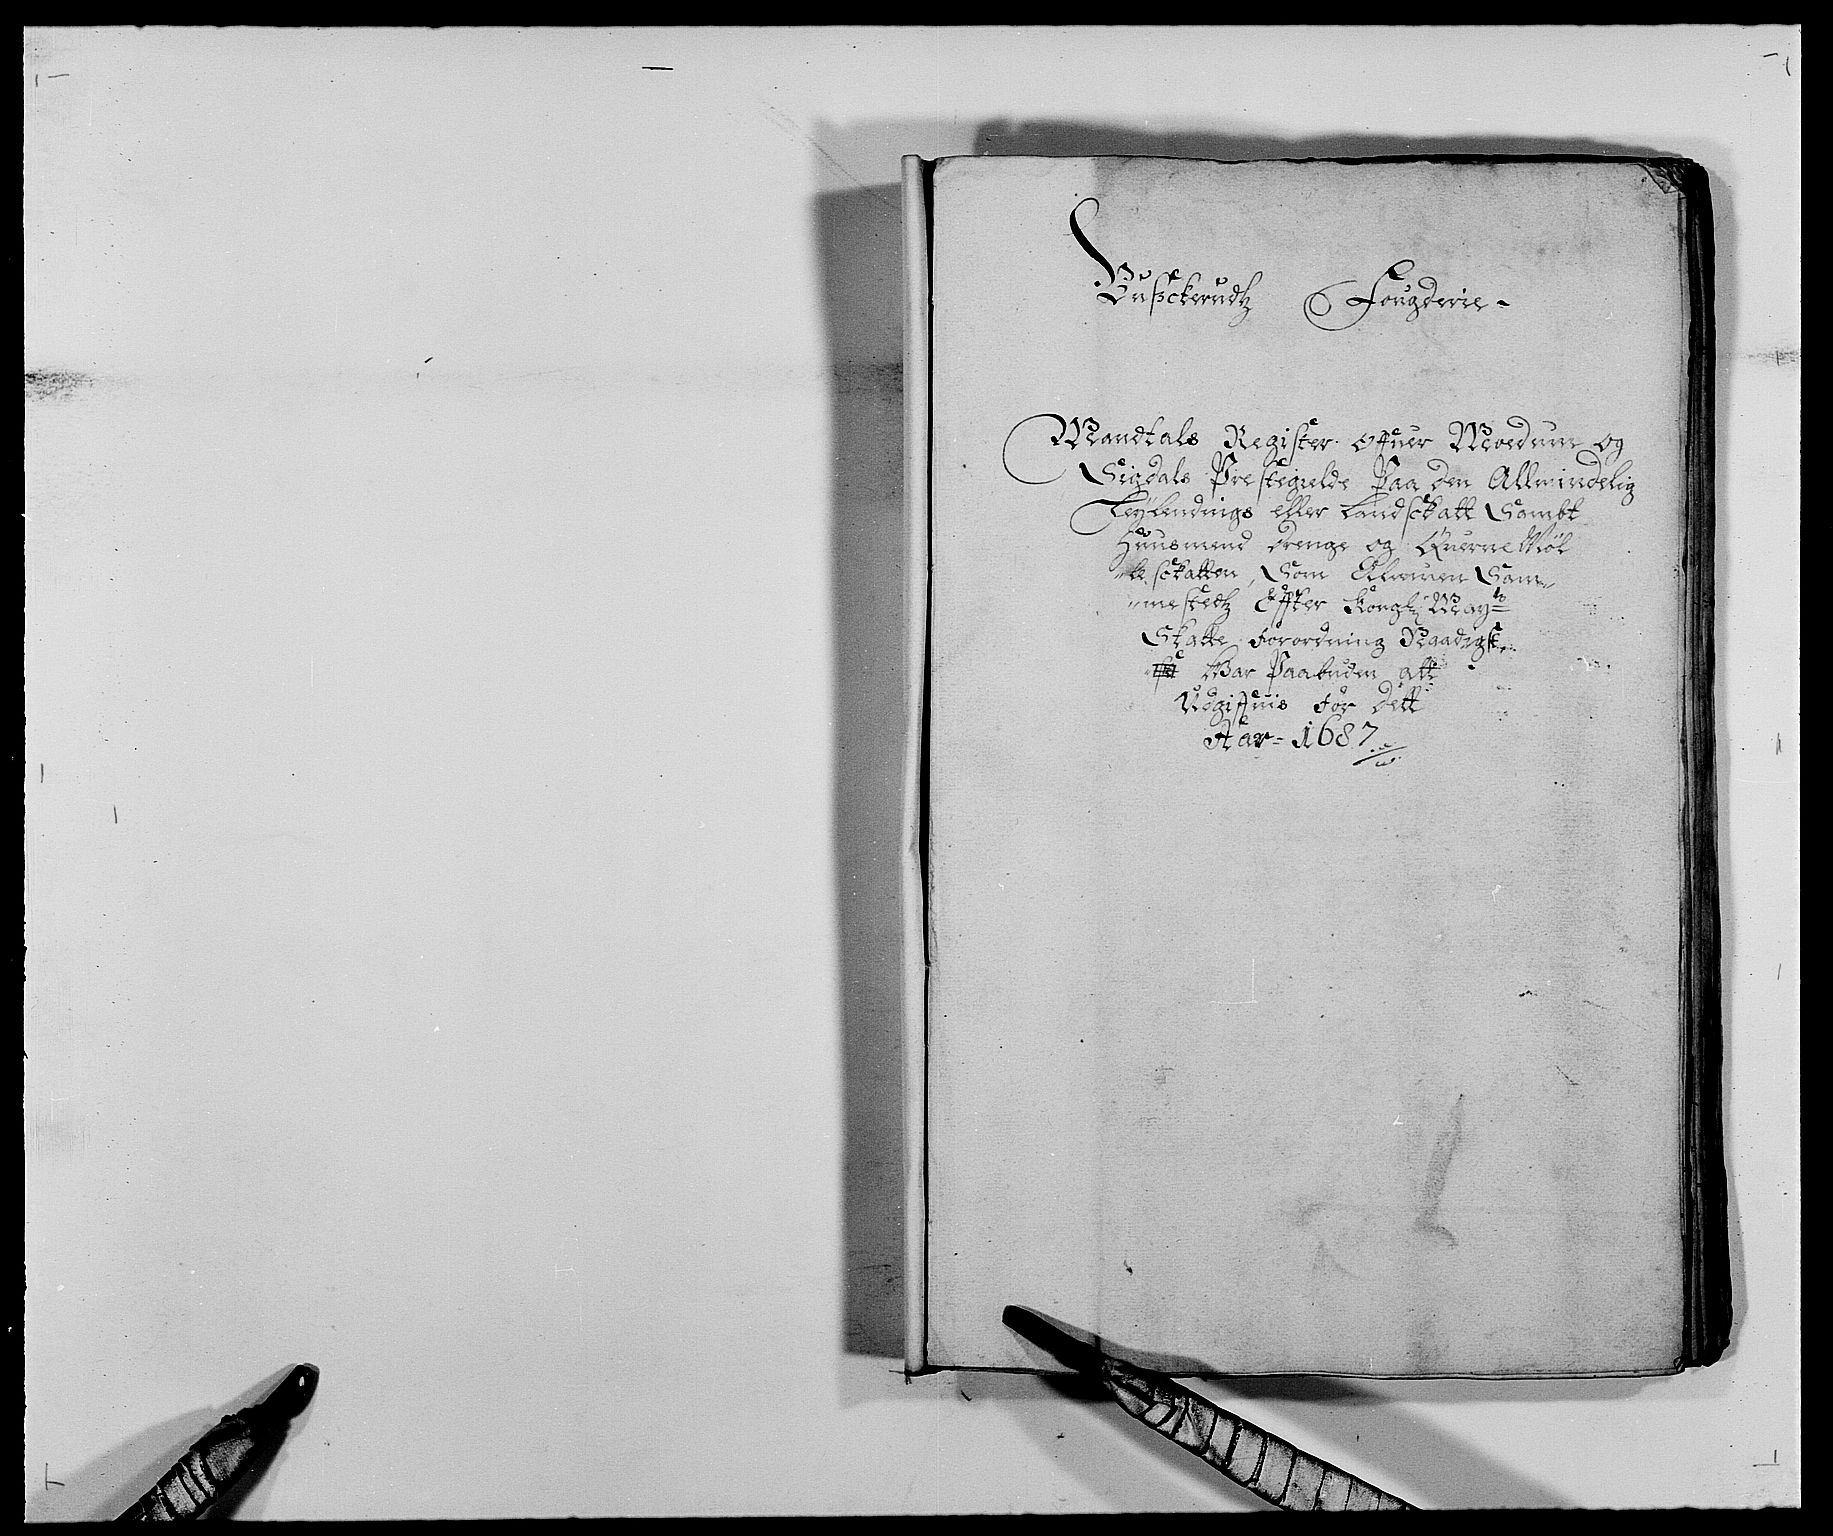 Bußckerudtz Fougderie-
Mandtals Register offuer Moedum og
Sigdals Prestegielde Paa den Allmindelig
Leylendings eller Landsckatt Sambt
Huusmend drenge og Querne Møl
"le sckatten, Som Almuen Sam="
"mestedtz Effter Kongl: Mayts
Skatte forordning Naadigst
War Paabuden att
Udgiffuis for dett
Aar= 1687